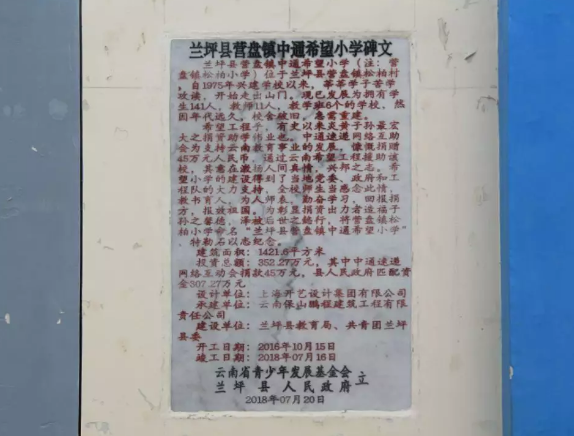 兰坪县营盘镇中通希望小学碑文
兰坪县营盘镇中通希望小学（注：营
盘镇松柏小学）位于兰坪县营盘镇松柏村
，自1975年兴建学校以来，莘莘学子苦学
攻读，开始走出山门，现已发展为拥有学
生141人，教师11人，教学班6个的学校，然
因年代远久，校舍破旧，急需重建。
希望工程于，有史以来炎黄子孙最宏
大之捐资助学伟业也。中通速递网络互助
会为支持云南教育事业的发展，慷慨捐赠
45万元人民币，通过云南希望工程援助该
校，其意在激扬人间真情，兴邦之志。希
望小学的建设得到了当地党委、政府和工
程队的大力支持，全校师生当感念此情，
教书育人，为人师表，勤奋学习，回报捐
方，报效祖国，为彰显捐资出力者造福子
孙之馨德，泽被后世之懿行，将营盘镇松
柏小学命名“兰坪县营盘镇中通希望小学”
，特勒石以志纪念。
建筑面积：1421.6平方米
投资总额：352.27万元，其中中通速递
网络互动会捐款45万元，县人民政府匹配资
金307.27万元。
设计单位：上海开艺设计集团有限公司
承建单位：云南保山鹏程建筑工程有限
责任公司
建设单位：兰坪县教育局、共青团兰坪
县委
开工日期：2016年10月15日
竣工日期：2018年07月16日
云南省青少年发展基金会
兰坪县人民政府
立
2018年07月20日